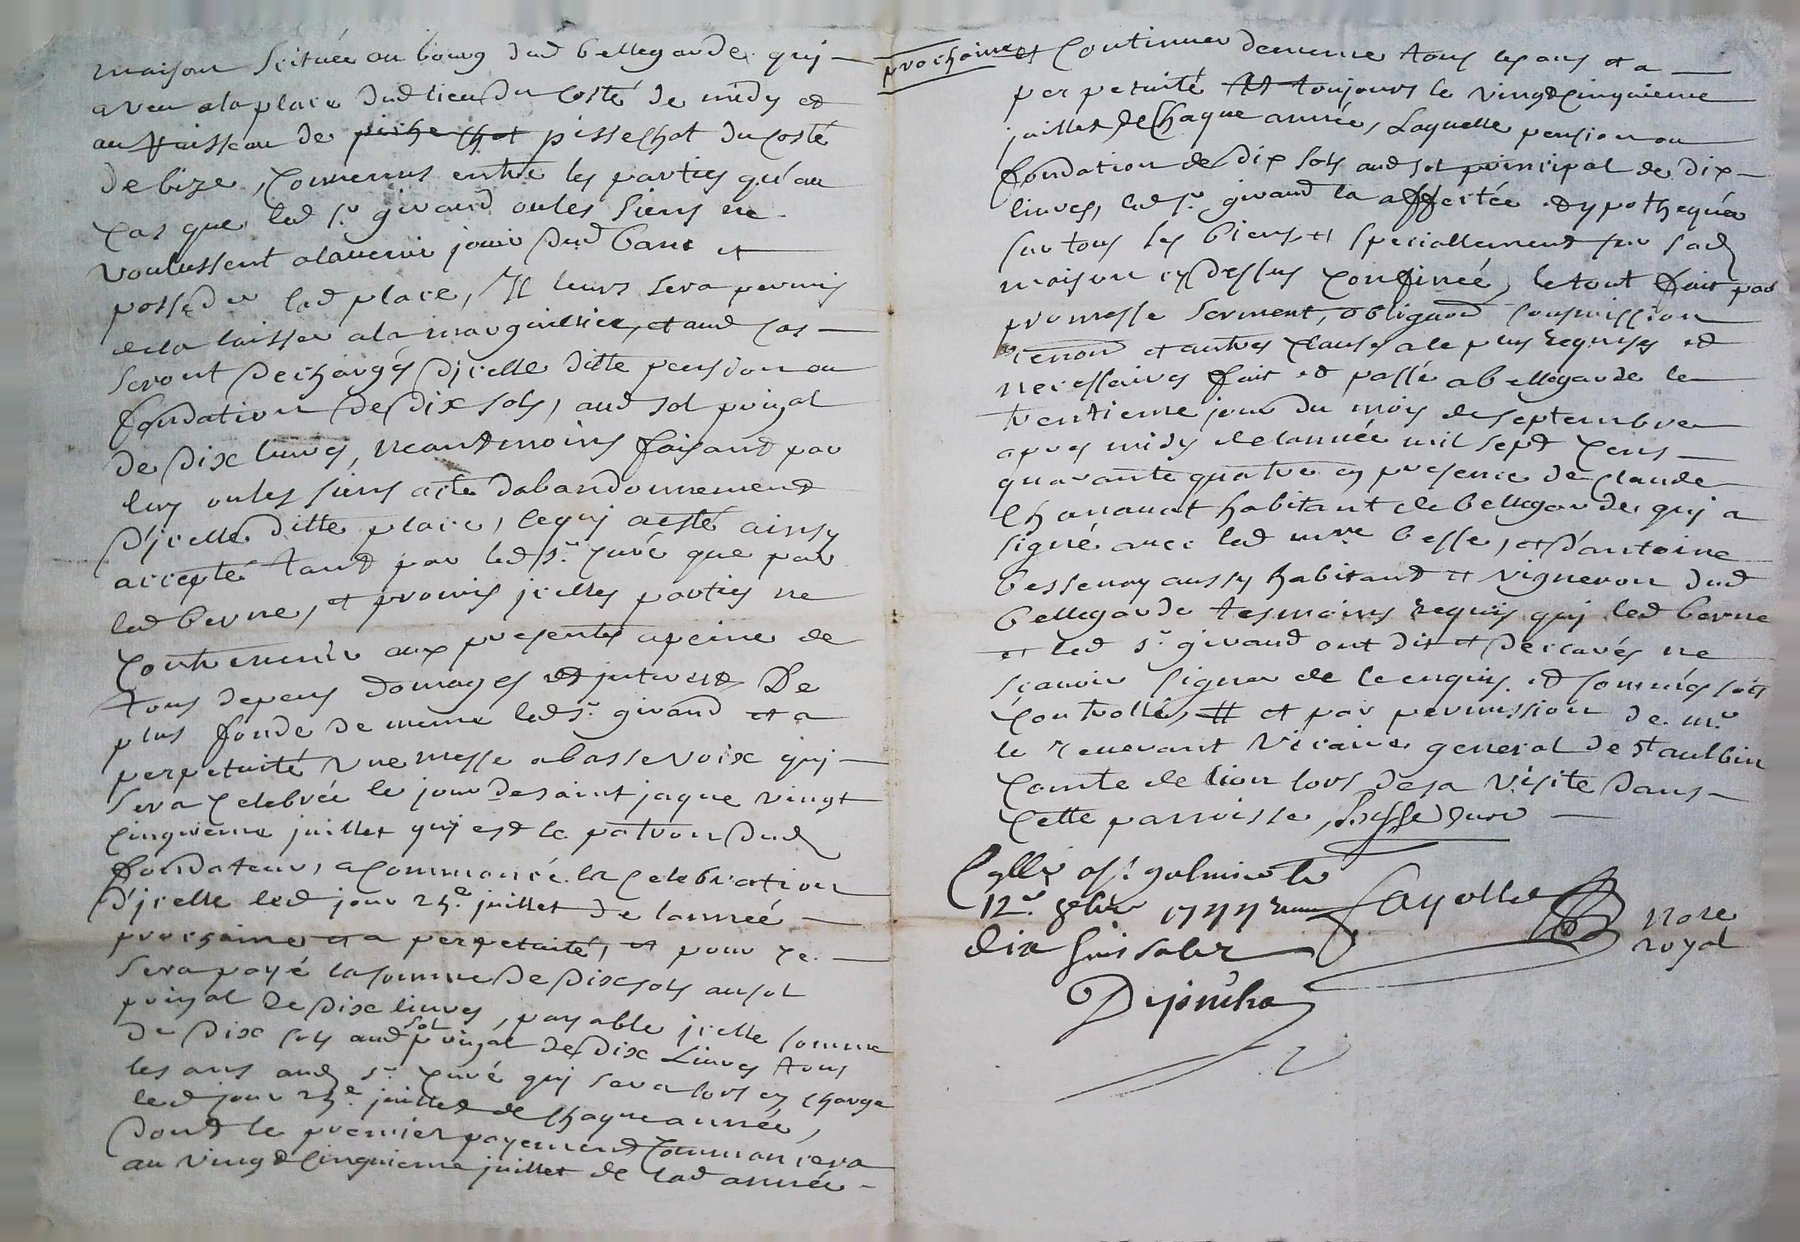 maison scituée au bourg dud bellegarde qui
a veu a la place dud lieu du costé de midy et
au ruisseau de pissechat du costé
de bize, convenus entre les parties qu'au
cas que led sr. givaud ou les siens ne
voulussent a lavenir jouir dud banc et
posseder lad place, Il leurs sera permis
de la laisser a la marguillerie, et aud cas
seront dechargés d'icelle ditte pension ou
fondation de dix sols, aud sol prinpal
de dix livres, neantmoins faisant par
luy ou les siens acte dabandonnement
d'icelle ditte place, le quj a esté ainsy
accepté tand par led sr. curé que par
led berne, et promis jcelles parties ne
contrevenir aux presentes a peine de
tous depens domages et interest De
plus fonde de meme led sr. givaud et a
perpetuité une messe a basse voix quj
sera celebrée le jour de saint jaque vingt
cinquieme juillet quj est le patron dud
fondateur, a commancé la celebration
d'jcelle led jour 25e. juillet de lannéé
prochaine et a perpetuité, et pour ce
sera payé la somme de dix sols au sol
prinpal de dix livres, payable jcelle somme
de dix sols aud sol prinpal de dix Livres tous
les ans aud sr. curé quj sera lors en charge
led jour 25e. juillet de chaque année,
dont le premier payement commancera
au vingt cinquieme juillet de lad année
prochaine et continuer de meme tous les ans et a
perpetuité et toujours le vingt cinquieme
juillet de chaque année, Laquelle pension ou
fondation de dix sols aud sol principal de dix
livres, led sr. givaud la affectée et ypothequée
sur tous ses biens et speciallement sur sad
maison cy dessus confinéé, le tout fait par
promesse serment, obligaon soumission
renon et autres clauses a le plus requises et
necessaires fait et passé a bellegarde le
trentieme jour du mois de septembre
apres midy de lannéé mil sept cens
quarante quatre en presence de claude
Chanavat habitant de bellegarde quj a
signé avec led mre besse, et d'antoine
bessenay aussy habitant et vigneron dud
bellegarde tesmoins requis quj led berne
et led sr. givaud ont dit et declarés ne
scavoir signer de ce enquis et sommés sera
controllé, et par permission de mr
le reverant vicaire general de st aulbin
comte de lion lors de sa visite dans
cette parroisse,
Cllé a st. galmier le
12e. 8bre 1744
dix huit sols
Fayolle
nore
royal